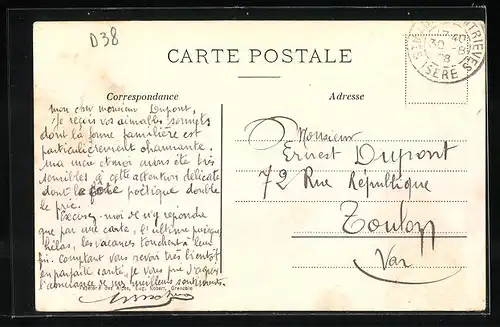 D38
CARTE POSTALE
Correspondance
Adresse
TRIEVES
30 -8
ISERE
mon cher monsieur Dupont,
Je reçois vos aimables sonnets
dont la forme familière est
particulièrement charmante.
ma mère et moi avons été très
sensibles à cette attention délicate
dont le côté poétique double
le prix.
Excusez-moi de n'y répondre
que par une carte, l'ultime puisque
hélas, les vacances touchent à leur
fin. Comptant vous revoir très bientôt
en parfaite santé, je vous prie d'agréer
l'assurance de mes meilleurs sentiments.
des Alpes, Eug. Robert, Grenoble
Monsieur
Ernest Dupont
72 Rue République
Toulon
Var